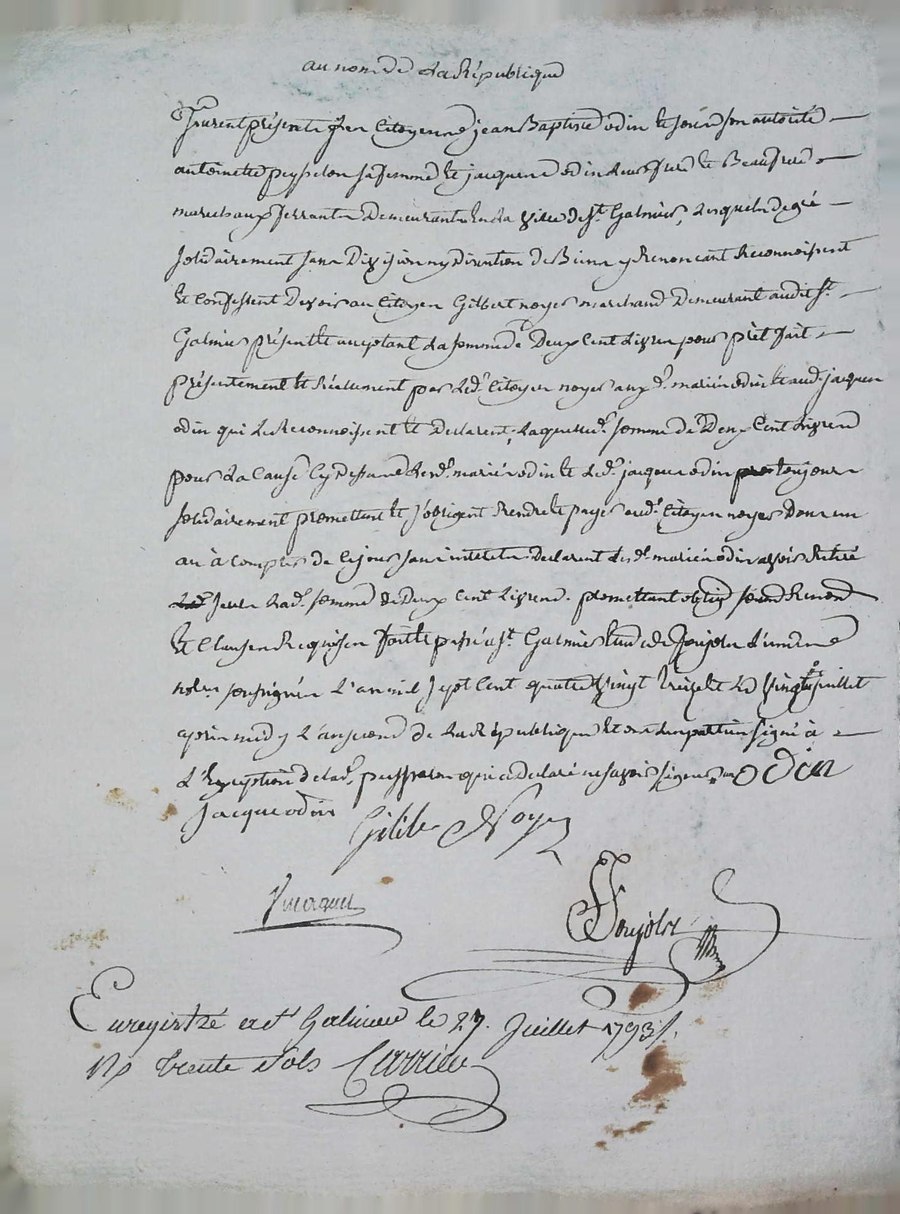 au nom de La République
furent présents Les Citoyens jean Baptiste odin et sous son autorité
antoinette peyssson sa femme et jacques odin leur frere et Beaufrere
marechaux ferrants Demeurants en La ville de St Galmier, Lesquels de gré
solidairement sans Division ny Discution de Biens y Renoncant Reconnoissent
et Confessent Devoir au Citoyen Gilbert noyer marchand Demeurant audit St
Galmier présent et acceptant La somme de Deux Cent Livres pour prêt fait
présentement et Réelement par Led. Citoyen noyer aux d. mariés odin et aud. jacques
odin qui Le Reconnoissent et Declarent, Laquelle d. somme de Deux Cent Livres
pour La Cause Cy Dessus Lesd. mariés odin et Led. jacques odin toujours
solidairement promettent et s'obligent Rendre et payer aud. Citoyen noyer Dans un
an à Compter de Ce jour sans interets. Declarent Lesd. mariés odin avoir Retiré
seuls Lad. somme de Deux Cent Livres. promettant oblig Renond
et Clauses Requises fait et passé a St Galmier Etude de
nores soussignés L'an mil sept Cent quatre vingt treize et Le vingt juillet
après midy L'an second de La République et ont Les parties signé à
L'Exception de Lad. qui a declaré ne savoir signer odin
Jacque odin
Noyer
Enregistré a St Galmier le 27. Juillet 1793
Rs trente sols Carrier